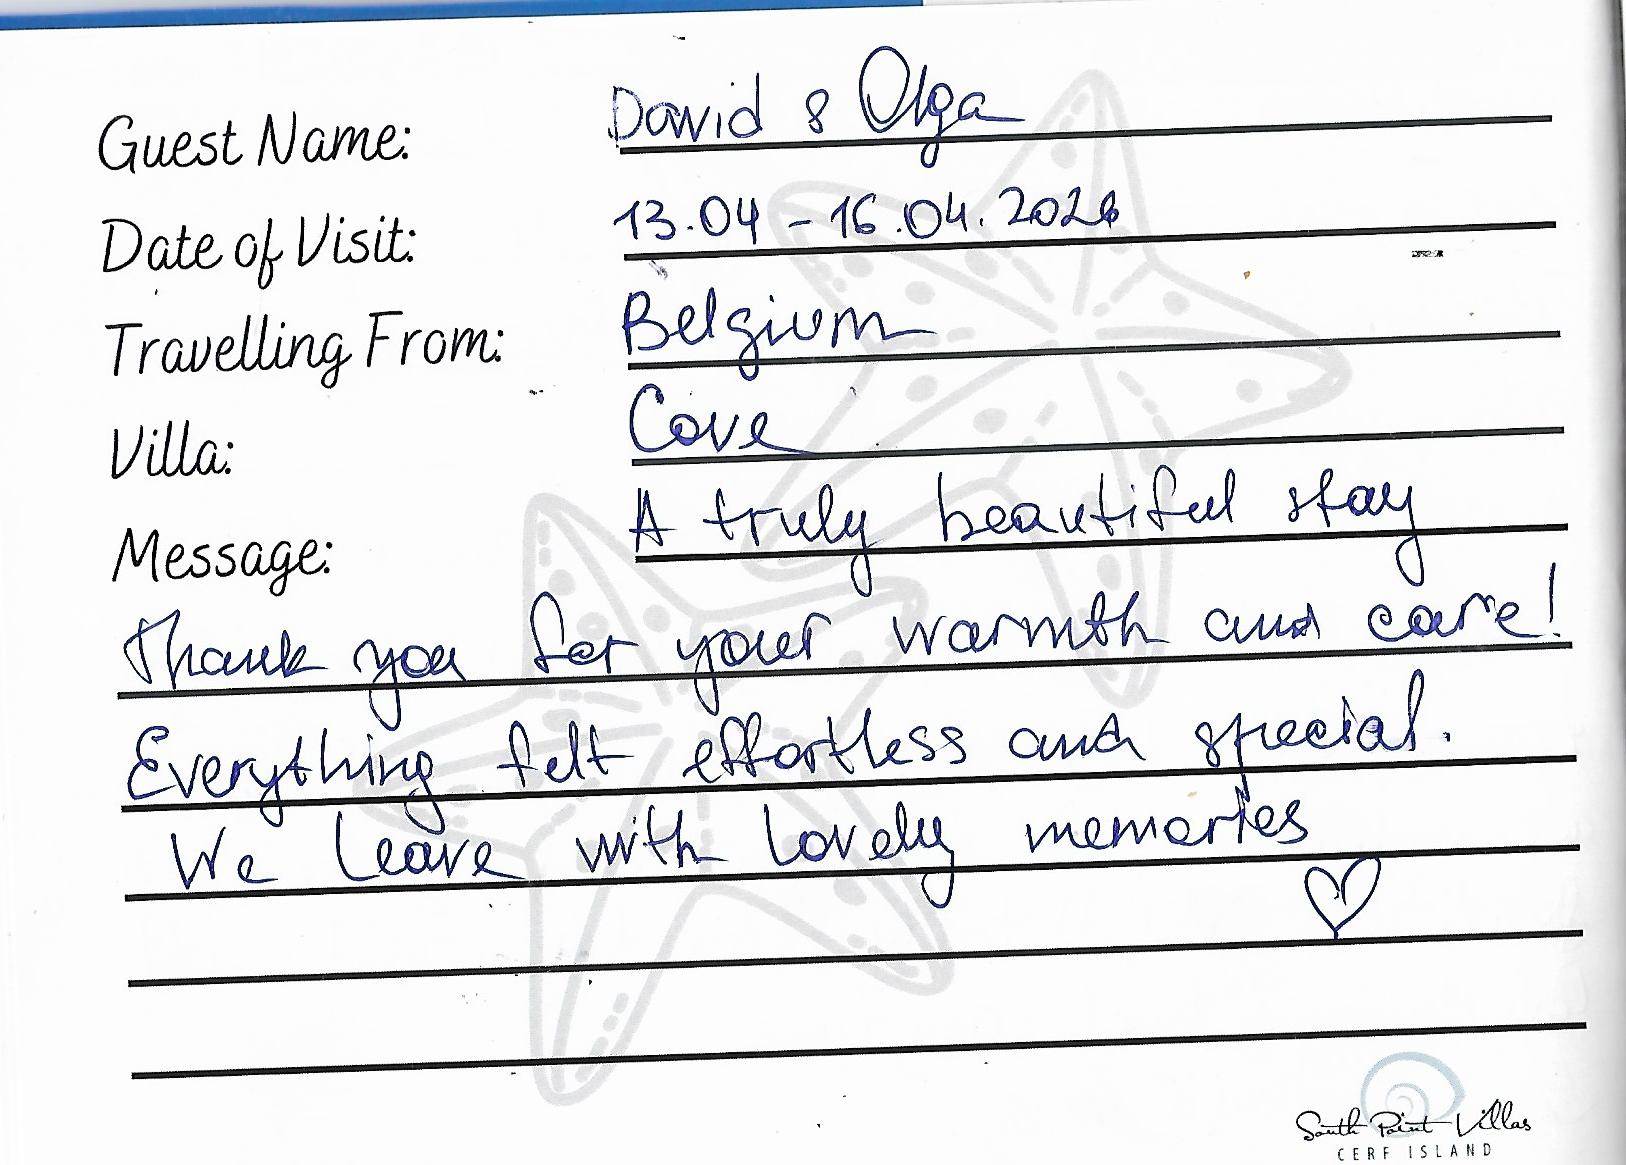 Guest Name: David & Olga
Date of Visit: 13.04 - 16.04.2026
Travelling From: Belgium
Villa: Cove
Message: A truly beautiful stay
Thank you for your warmth and care!
Everything felt effortless and special.
We leave with lovely memories
♡
South Point Villas
CERF ISLAND